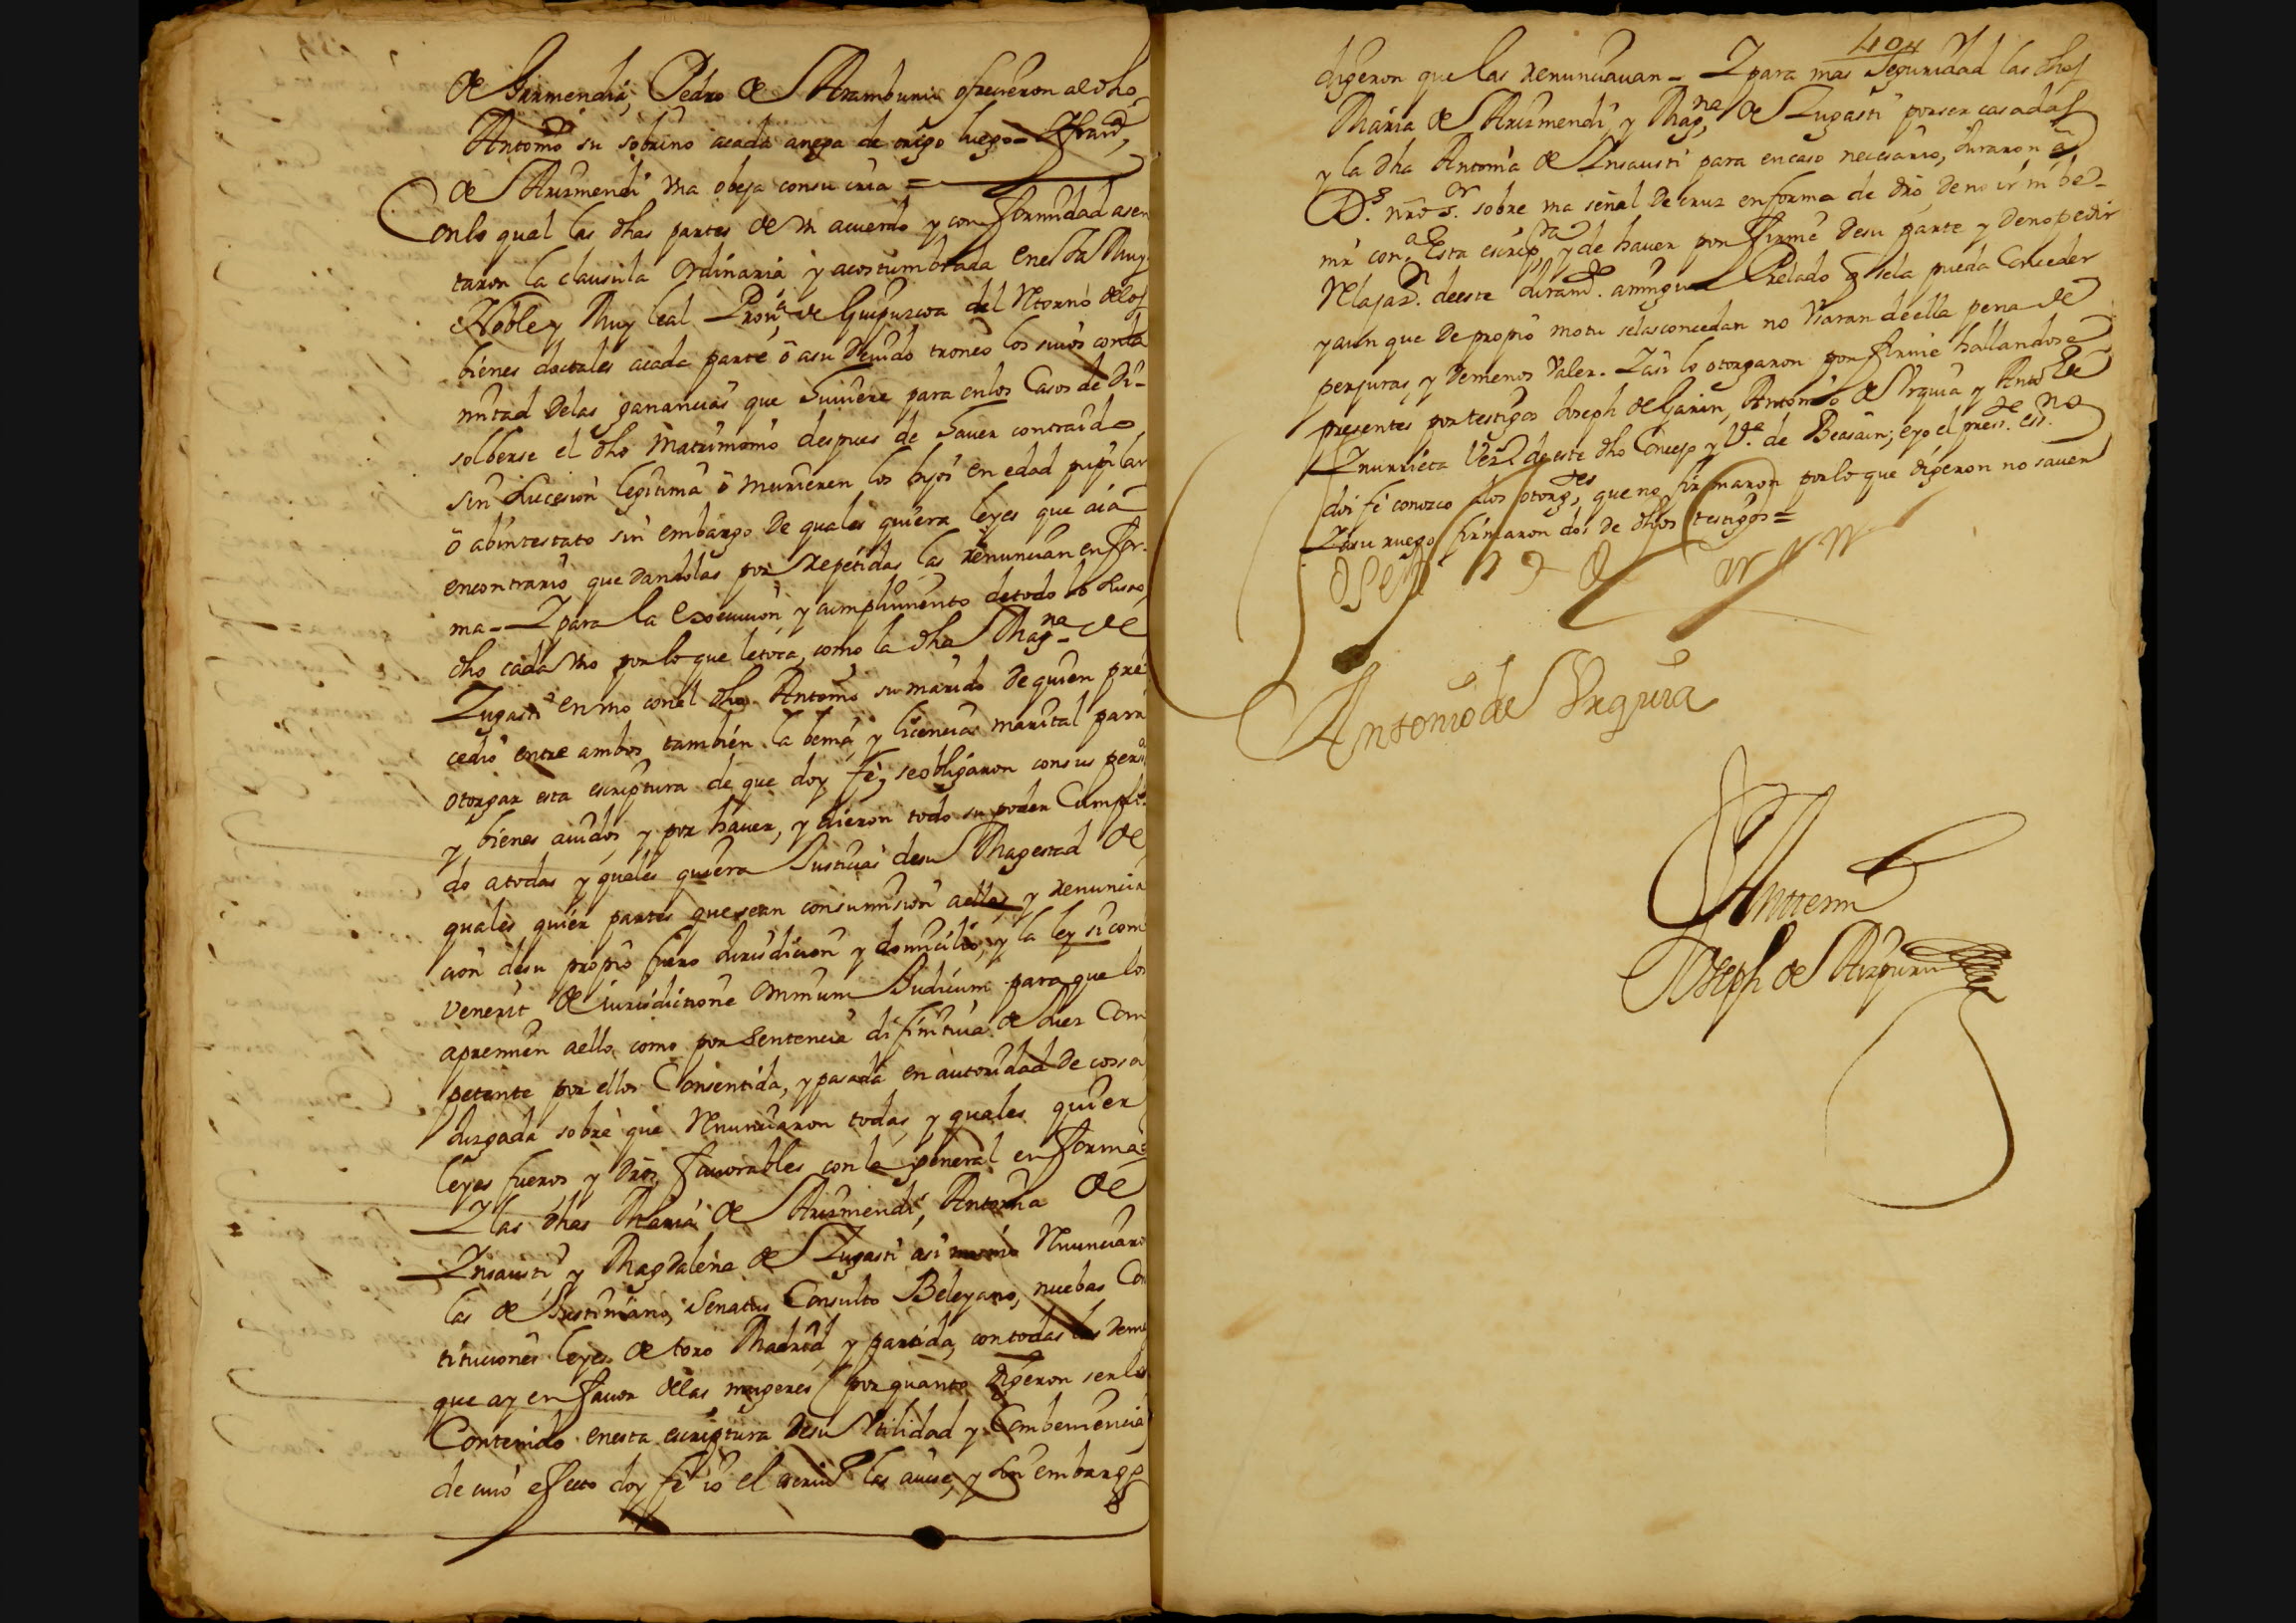 de Garmendia, Pedro de Aramburu ofrecieron al dho
Antonio su sobrino a cada anega de trigo luego = 
de Arizmendi vna obeja con su cria =
Con lo qual las dhas partes de vn acuerdo y conformidad asen
taron la clausula ordinaria y acostumbrada en esta Muy
Noble y Muy leal Prou.a de Guipuzcoa del Retorno de los
bienes dottales a cada parte ô a su deuido tronco los suios con la
mitad de las ganancias que huuiere para en los Casos de di-
solberse el dho Matrimonio despues de hauer contraido
sin subcesion legitima ô murieren los hijos en edad pupilar
ô abintestato sin embargo de quales quiera leyes que aia
encontrario que dandolas por repetidas las renuncian en for-
ma - I para la execucion y cumplimiento de todo lo suso
dho cada vno por lo que le toca, como la dha Mag.na de
Zugasti en vno con el dho Antonio su marido de quien pre
cedio entre ambos tambien la benia y licencia marital para
otorgar esta escriptura de que doy fè, se obligaron con sus pers.s
y bienes auidos y por hauer, y dieron todo su poder Cumpli
do a todas y quales quiera Justicias de su Magestad de
quales quier partes que sean con sumision a ellas y renuncia
cion de su propio fuero Jurisdicion y domicilio, y la ley si com
venerit de iurisditione omnium Judicum para que los
apremien a ello como por Sentencia difinitiua de Juez Com
petente por ellos Consentida, y pasada en autoridad de cossa
Juzgada sobre que Renunciaron todas y quales quier
leyes fueros y dros fauorables con la general en forma
I las dhas Maria de Arizmendi, Antonia de
Insausti y Magdalena de Zugasti asi mismo Renunciaron
las de Justiniano, Senatus Consulto Beleyano, nuebas Con
tituciones leyes de toro Madrid y partida, con todas las demas
que ay en fauor de las mugeres (por quanto digeron ser lo
Contenido en esta escriptura de su Vtilidad y Combeniencia
de cuio efecto doy fè io el escriu.o las auise, y sin embargo
404
digeron que las renunciauan - I para mas Seguridad las dhas
Maria de Arizmendi y Mag.na de Zugasti por ser casadas
y la dha Antonia de Insausti para en caso necesario, Juraron â
D.s nro S.r sobre vna señal de cruz en forma de dro, de no ir ni be-
nir con.a Esta escrip.ra y de hauer por firme de su parte y de no pedir
Relajaz.n de este Juram.to a ningun Prelado q se la pueda Conceder
y aun que de propio motu se las concedan no Vsaran de ella pena de
perjuras, y de menos Valer. I asi lo otorgaron por firme hallandose
presentes por testigos Joseph de Garin, Antonio de Vrquia y Ant.o de
Inurrieta Vez.s de este dho Concejo y V.a de Beasain; e yo el pres.te ess.no
doi fè conozco a los otorg.tes, que no firmaron por lo que digeron no sauer
I a su ruego firmaron dos de dhos testigos =
Joseph de Garin
Antonio de Vrquia
Ante mi
Joseph de Aizpuru